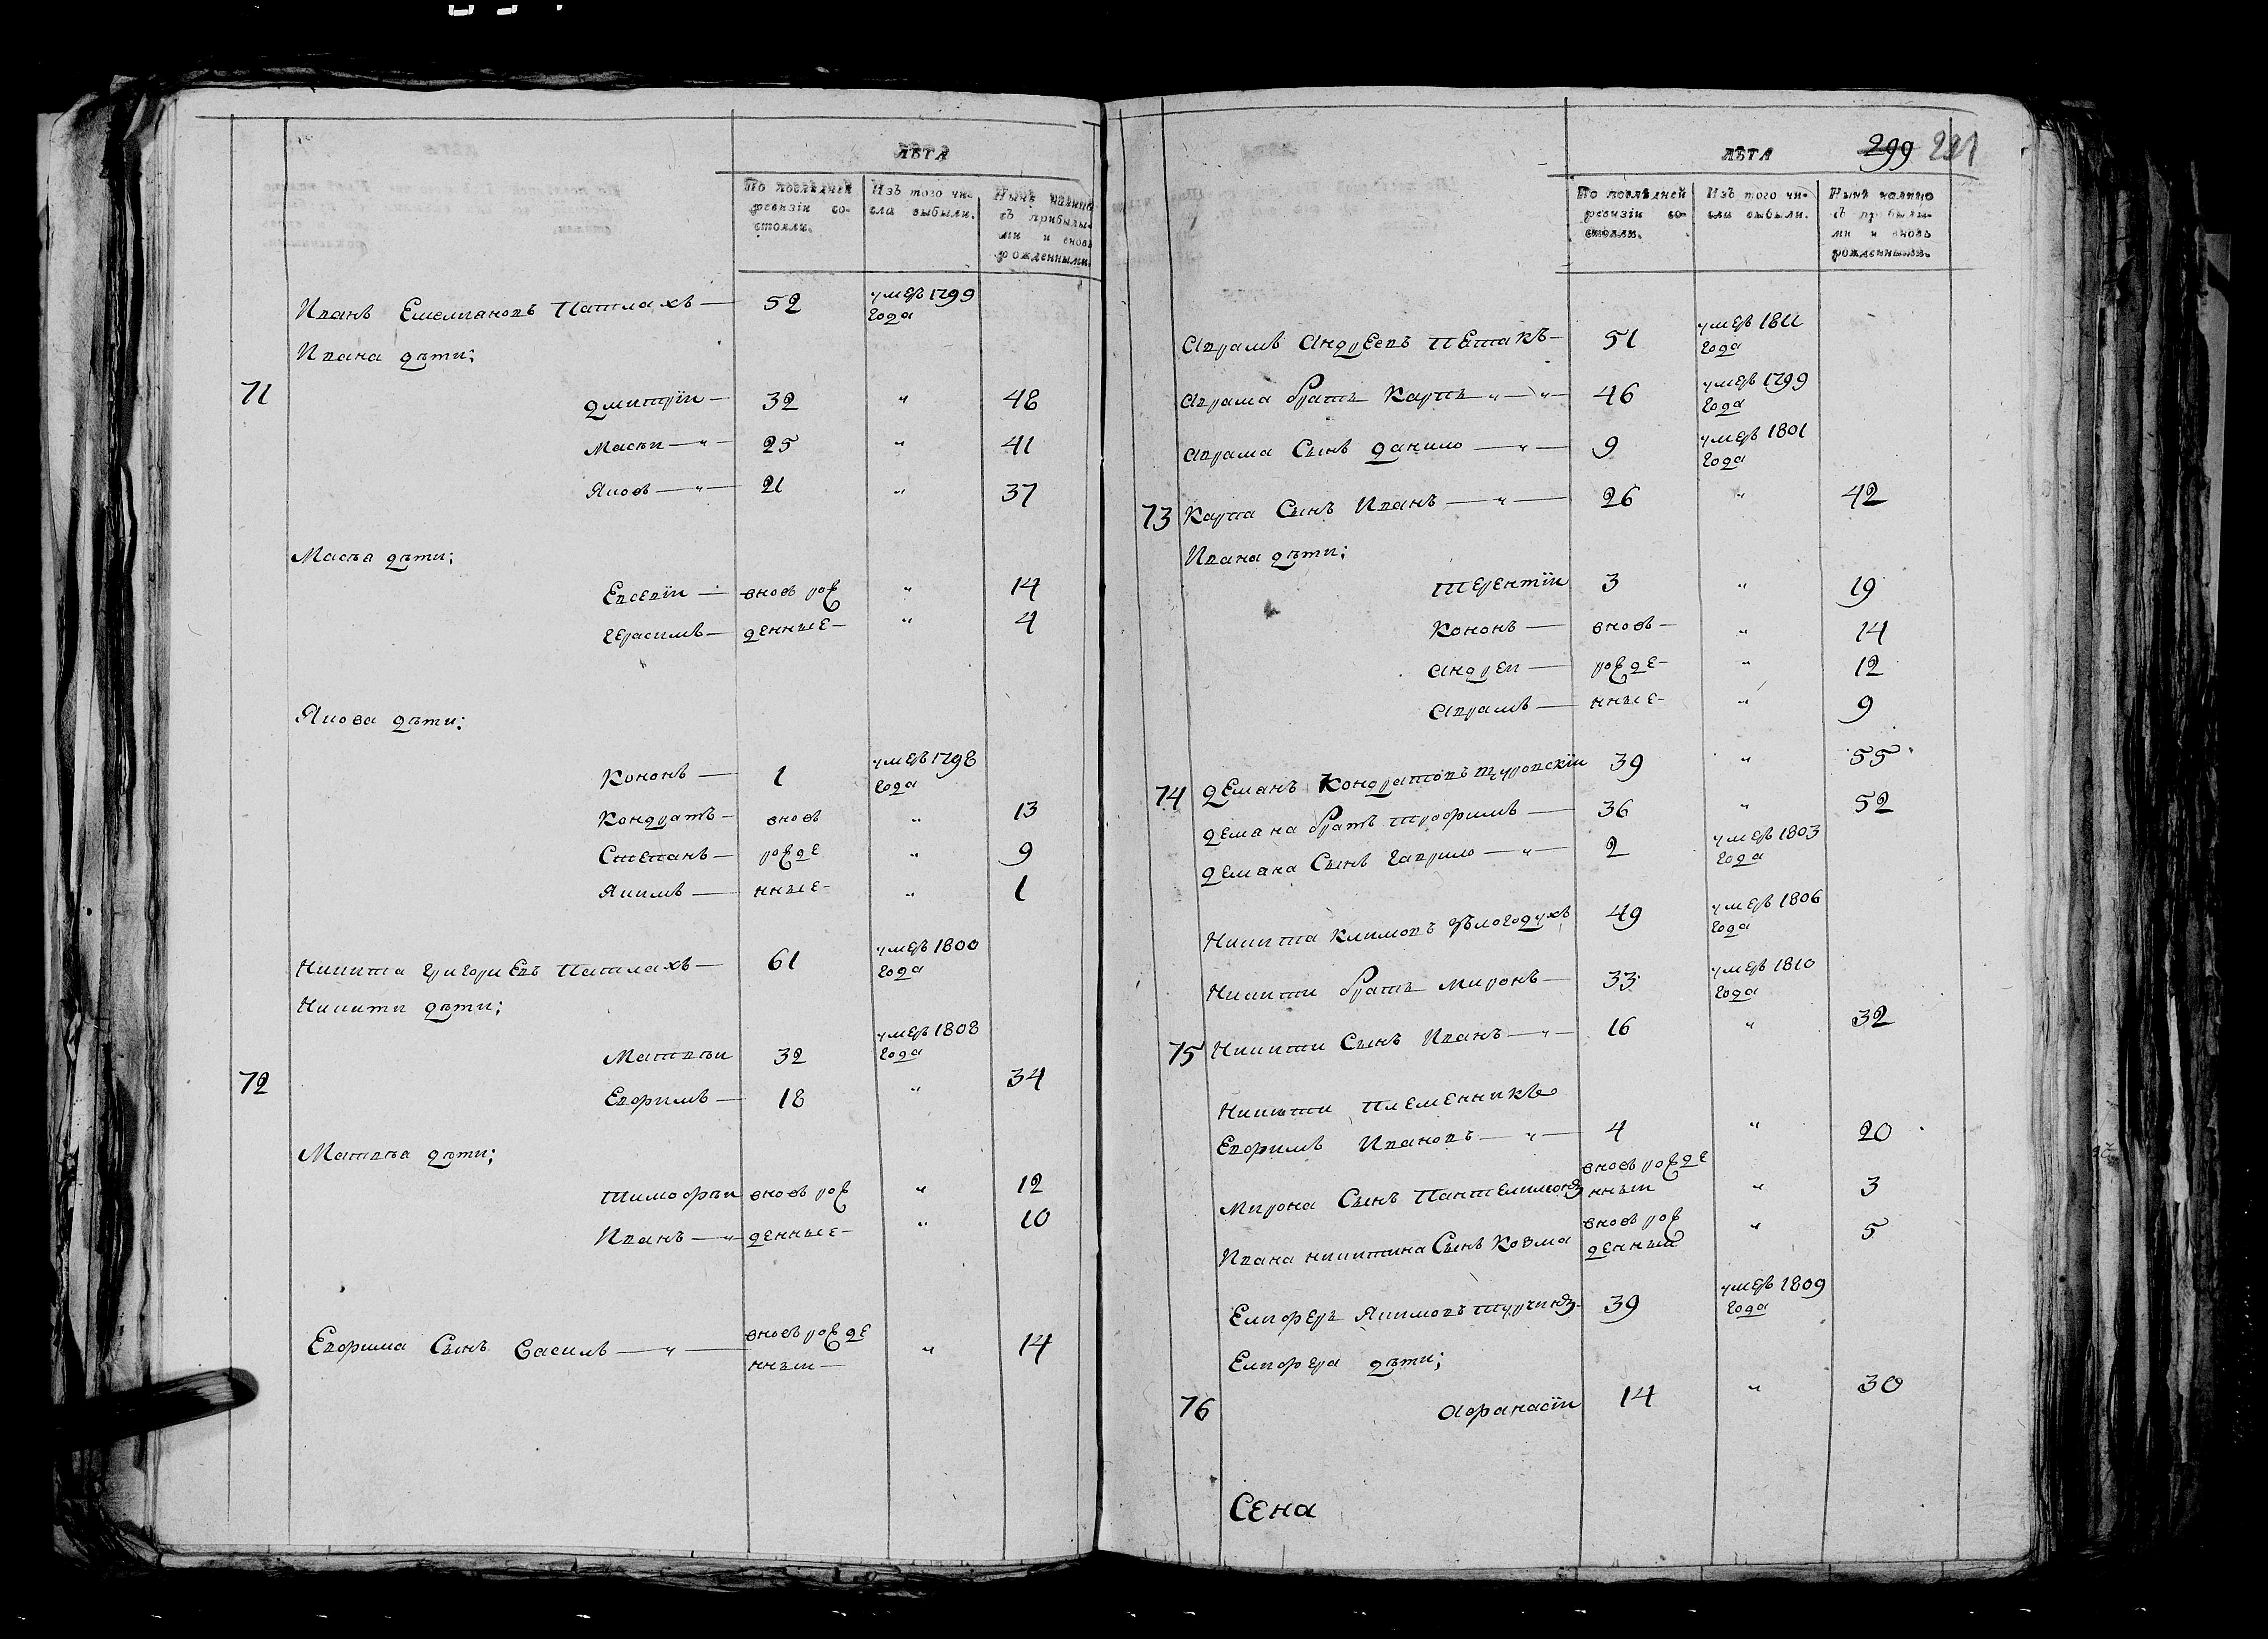 ЛѢТА
По послѣдней ревизіи состояли.
Изъ того числа выбыли.
Нынѣ налицо съ прибылыми и вновь рожденными.
Иванъ Емелияновъ Патлахъ — 52 умеръ 1799 года
Ивана дѣти;
71
Дмитрїи — 32 " 48
Масѣи — " — 25 " 41
Яковъ — " — 21 " 37
Масѣа дѣти;
Евсевїи — вновь рож " 14
Герасимъ — денные — " 4
Якова дѣти;
Кононъ — 1 умеръ 1798 года
Кондратъ — вновь " 13
Степанъ — рожде " 9
Якимъ — нные — " 1
Никита Григориевъ Патлахъ — 61 умеръ 1800 года
Никити дѣти;
Матвѣи 32 умеръ 1808 года
72 Евфимъ — 18 " 34
Матвѣа дѣти;
Тимофѣи вновь рож " 12
Иванъ — " — денные — " 10
Евфима Сынъ Василь — " — вновь рожде нныи — " 14
299 221
ЛѢТА
По послѣдней ревизіи состояли.
Изъ того числа выбыли.
Нынѣ налицо съ прибылыми и вновь рожденными.
Аврамъ Андреевъ Петакъ — 51 умеръ 1811 года
Аврама братъ Карпъ " — " — 46 умеръ 1799 года
Аврама Сынъ Данило — " — 9 умеръ 1801 года
73 Карпа Сынъ Иванъ — " — 26 " 42
Ивана дѣти;
Терентїи 3 " 19
Кононъ — вновь — " 14
Андреи — рожде — " 12
Аврамъ — нные — " 9
74 Деманъ Кондратовъ Туровскїи 39 " 55
Демана братъ Трофимъ — 36 " 52
Демана Сынъ Гаврило — " — 2 умеръ 1803 года
Никита Климовъ Бѣлогодухъ 49 умеръ 1806 года
Никити братъ Миронъ — 33 умеръ 1810 года
75 Никити Сынъ Иванъ — " — 16 " 32
Никити племенникъ
Евфимъ Ивановъ — " — 4 " 20
Мирона Сынъ Пантелимонъ вновь рожде нныи " 3
Ивана Никитина Сынъ Козма вновь рож денныи " 5
Елиферъ Якимовъ Турчинъ — 39 умеръ 1809 года
Елифера дѣти;
76 Афанасїи 14 " 30
Сена